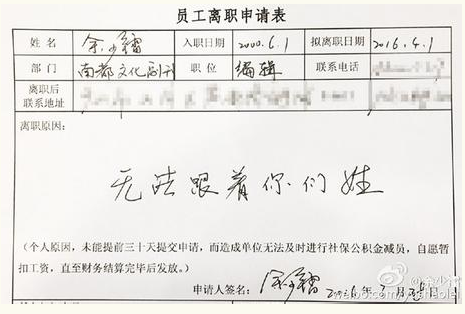 员工离职申请表
姓名 余少镭 入职日期 2000.6.1 拟离职日期 2016.4.1
部门 南都文化副刊 职位 编辑 联系电话
离职后联系地址
离职原因：
无法跟着你们姓
（个人原因，未能提前三十天提交申请，而造成单位无法及时进行社保公积金减员，自愿暂
扣工资，直至财务结算完毕后发放。）
申请人签名： 余少镭 2016年3月28日